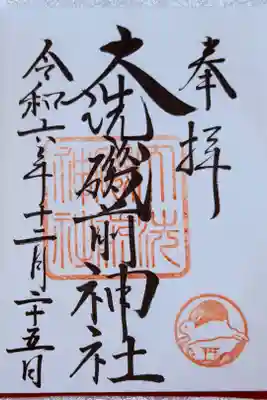 奉拝
大洗磯前神社
令和六年十二月二十五日
大洗磯前神社